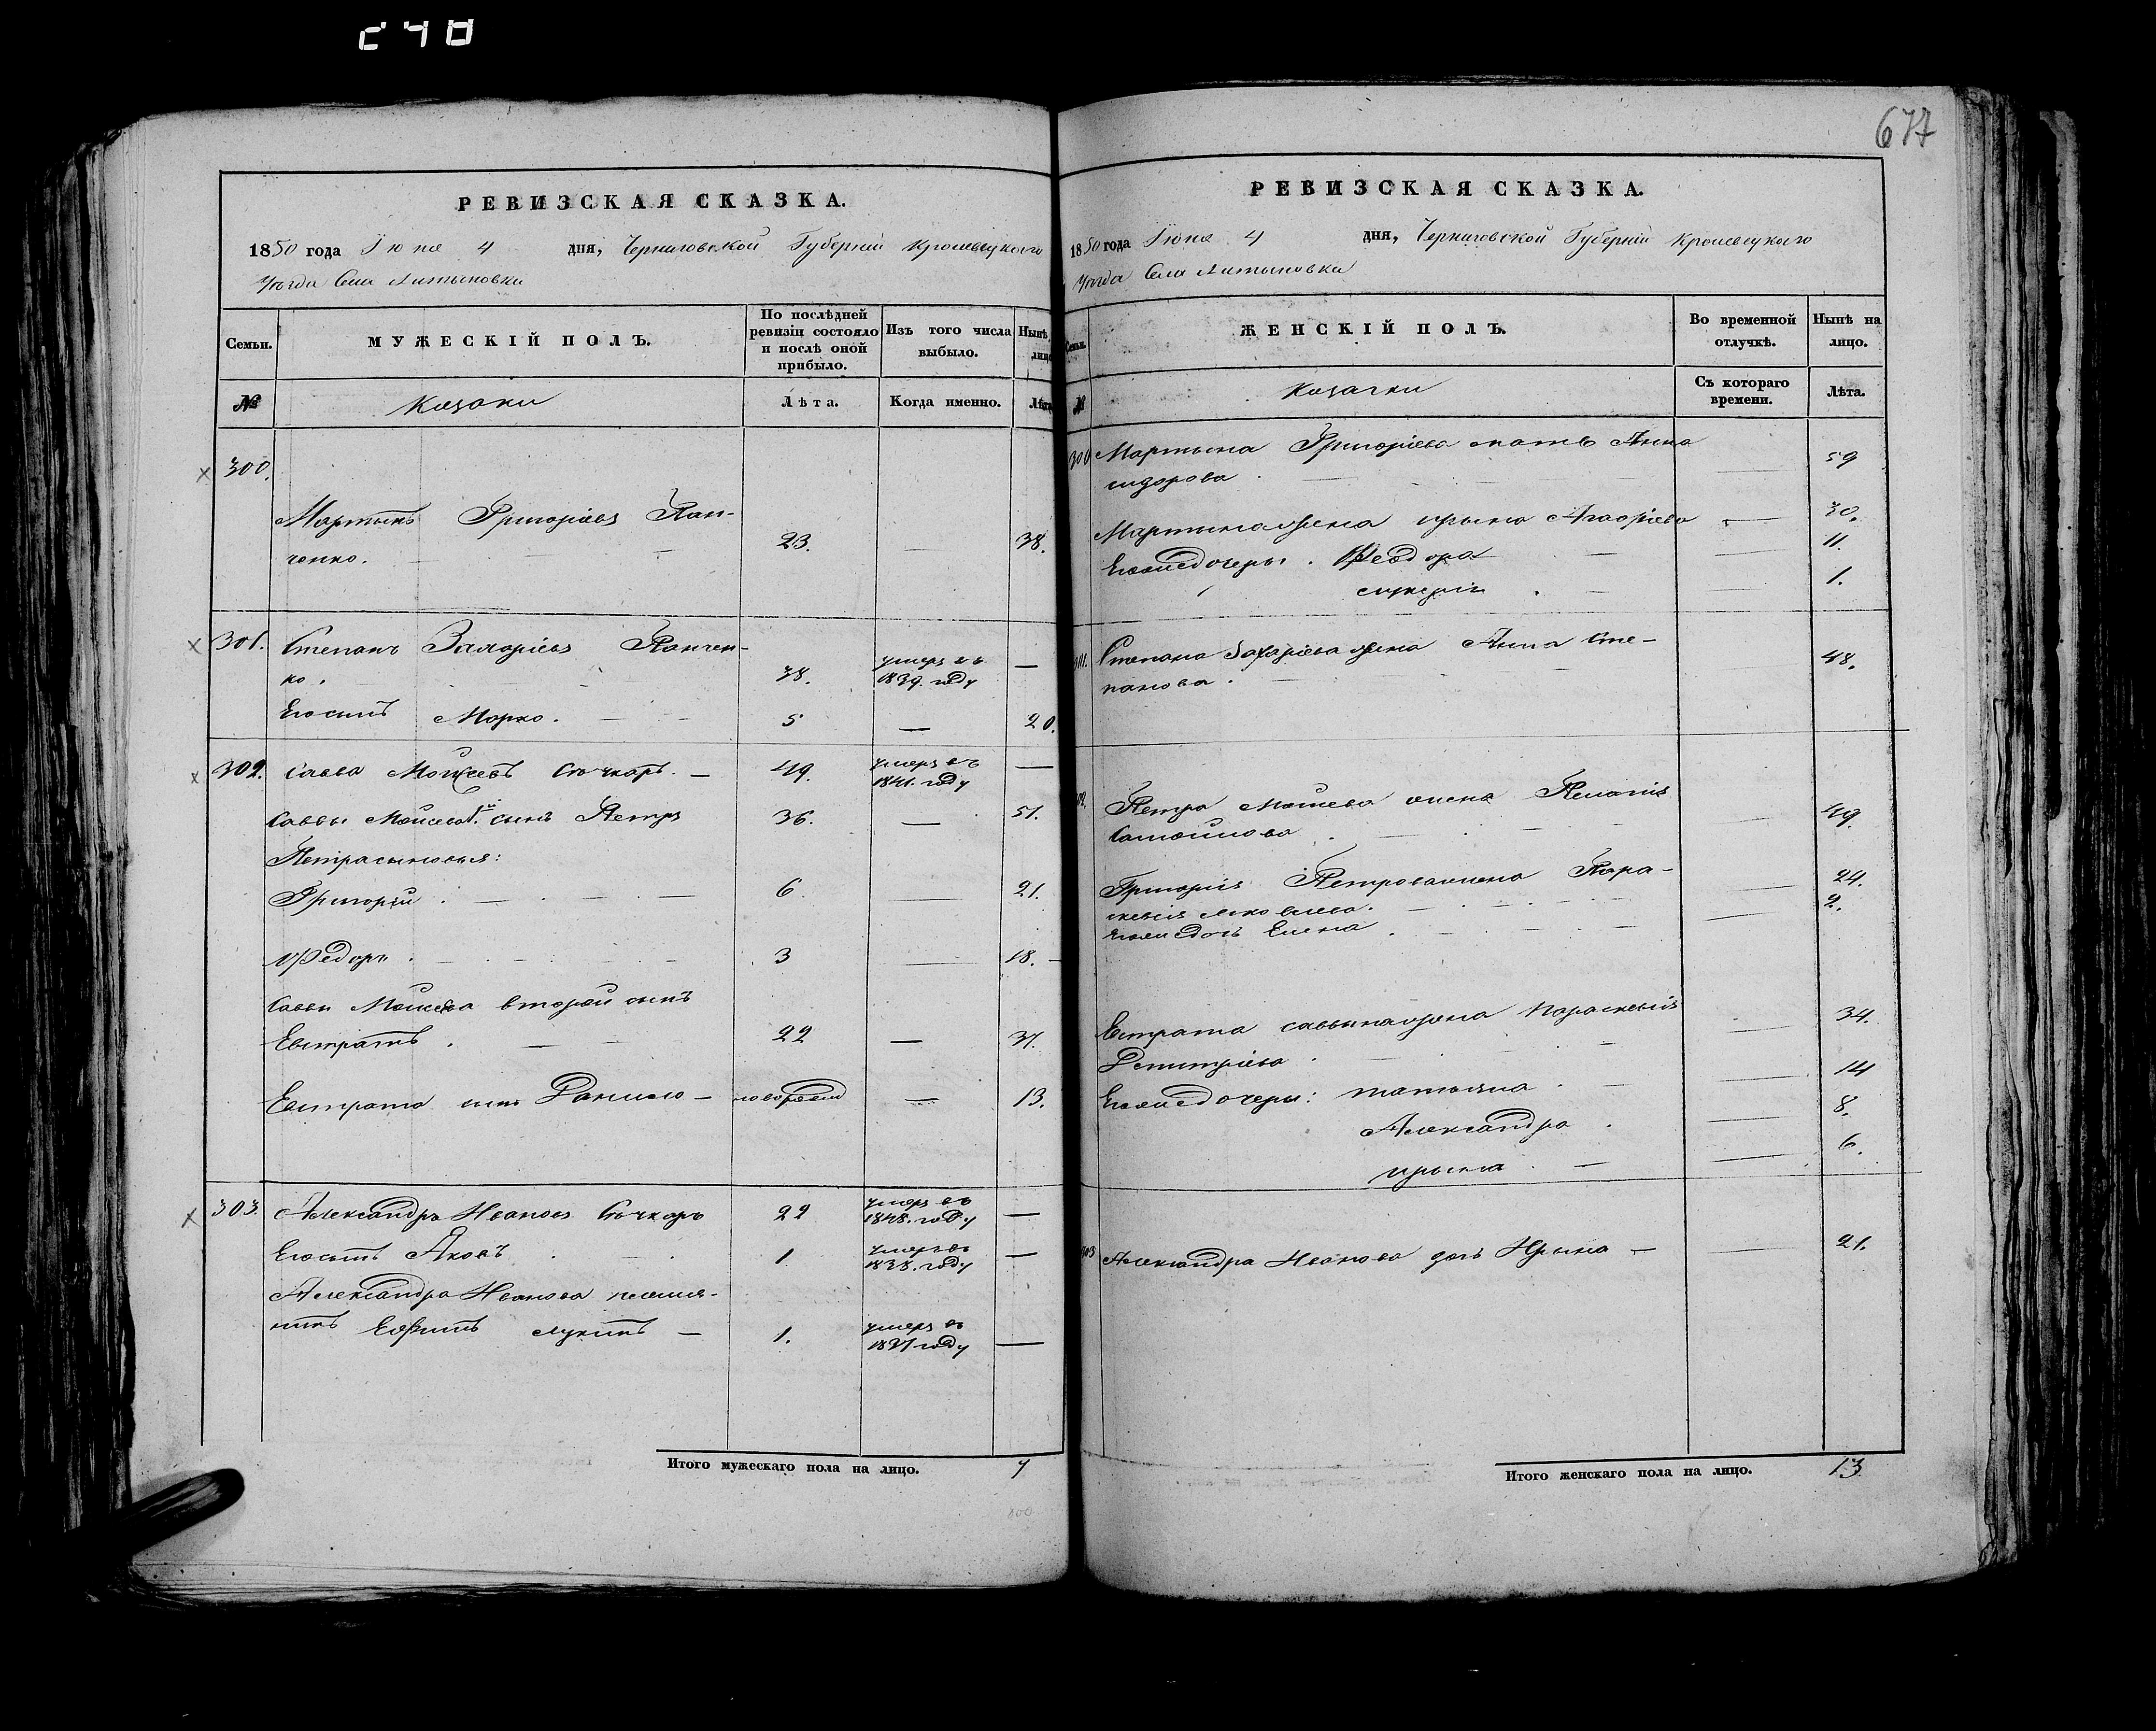 677
РЕВИЗСКАЯ СКАЗКА.
1850 года Іюня 4 дня, Черниговской Губерніи Кролевецкаго
Уѣзда Села Литвиновки
Семьи.
МУЖЕСКІЙ ПОЛЪ.
По послѣдней ревизіи состояло и послѣ оной прибыло.
Изъ того числа выбыло.
Нынѣ
№
Казаки
Лѣта.
Когда именно.
300.
Мартынъ Григоріевъ Пан-
ченко. 23. — 38.
301. Степанъ Захаріевъ Панчен-
ко. 38. умеръ въ 1839. году —
Егосынъ Марко. 5 — 20.
302. Савва Моисеевъ Сичкарь. — 49. умеръ въ 1841. году —
Саввы Моисеева 1й. сынъ Петръ 36. — 51.
Петрасыновья:
Григорій 6 — 21.
Федоръ 3 — 18.
Саввы Моисеева второй сынъ
Евстратъ 22 — 37.
Евстрата сынъ Данило — новорожд — 13.
303. Александръ Ивановъ Сичкарь 22 умеръ въ 1848. году —
Егосынъ Яковъ 1 умеръ въ 1838. году —
Александра Иванова племя-
никъ Ефимъ Лукинъ — 1. умеръ въ 1837 году —
Итого мужескаго пола на лицо. 7
РЕВИЗСКАЯ СКАЗКА.
1850 года Іюня 4 дня, Черниговской Губерніи Кролевецкаго
Уѣзда Села Литвиновки
Семьи.
ЖЕНСКІЙ ПОЛЪ.
Во временной отлучкѣ.
Нынѣ на лицо.
№
Казачки
Съ котораго времени.
Лѣта.
300 Мартына Григоріева мать Анна
сидорова. — 59
Мартынажена ирына — 30.
Егоиєдочеры. Феодора — 11.
— 1.
301. Степана Захаріева жена Анна Сте-
панова. 48.
302. Петра жена Пелагія
— 49.
Григорія Петроважена Пара-
скевія — 24.
дочь Елена — 2.
Евстрата саввинажена Параскевія
Дмитріева — 34.
дочеры: татьяна — 14
Александра — 8.
ирына — 6.
303 Александра Иванова дочь Ирына — 21.
Итого женскаго пола на лицо. 13.